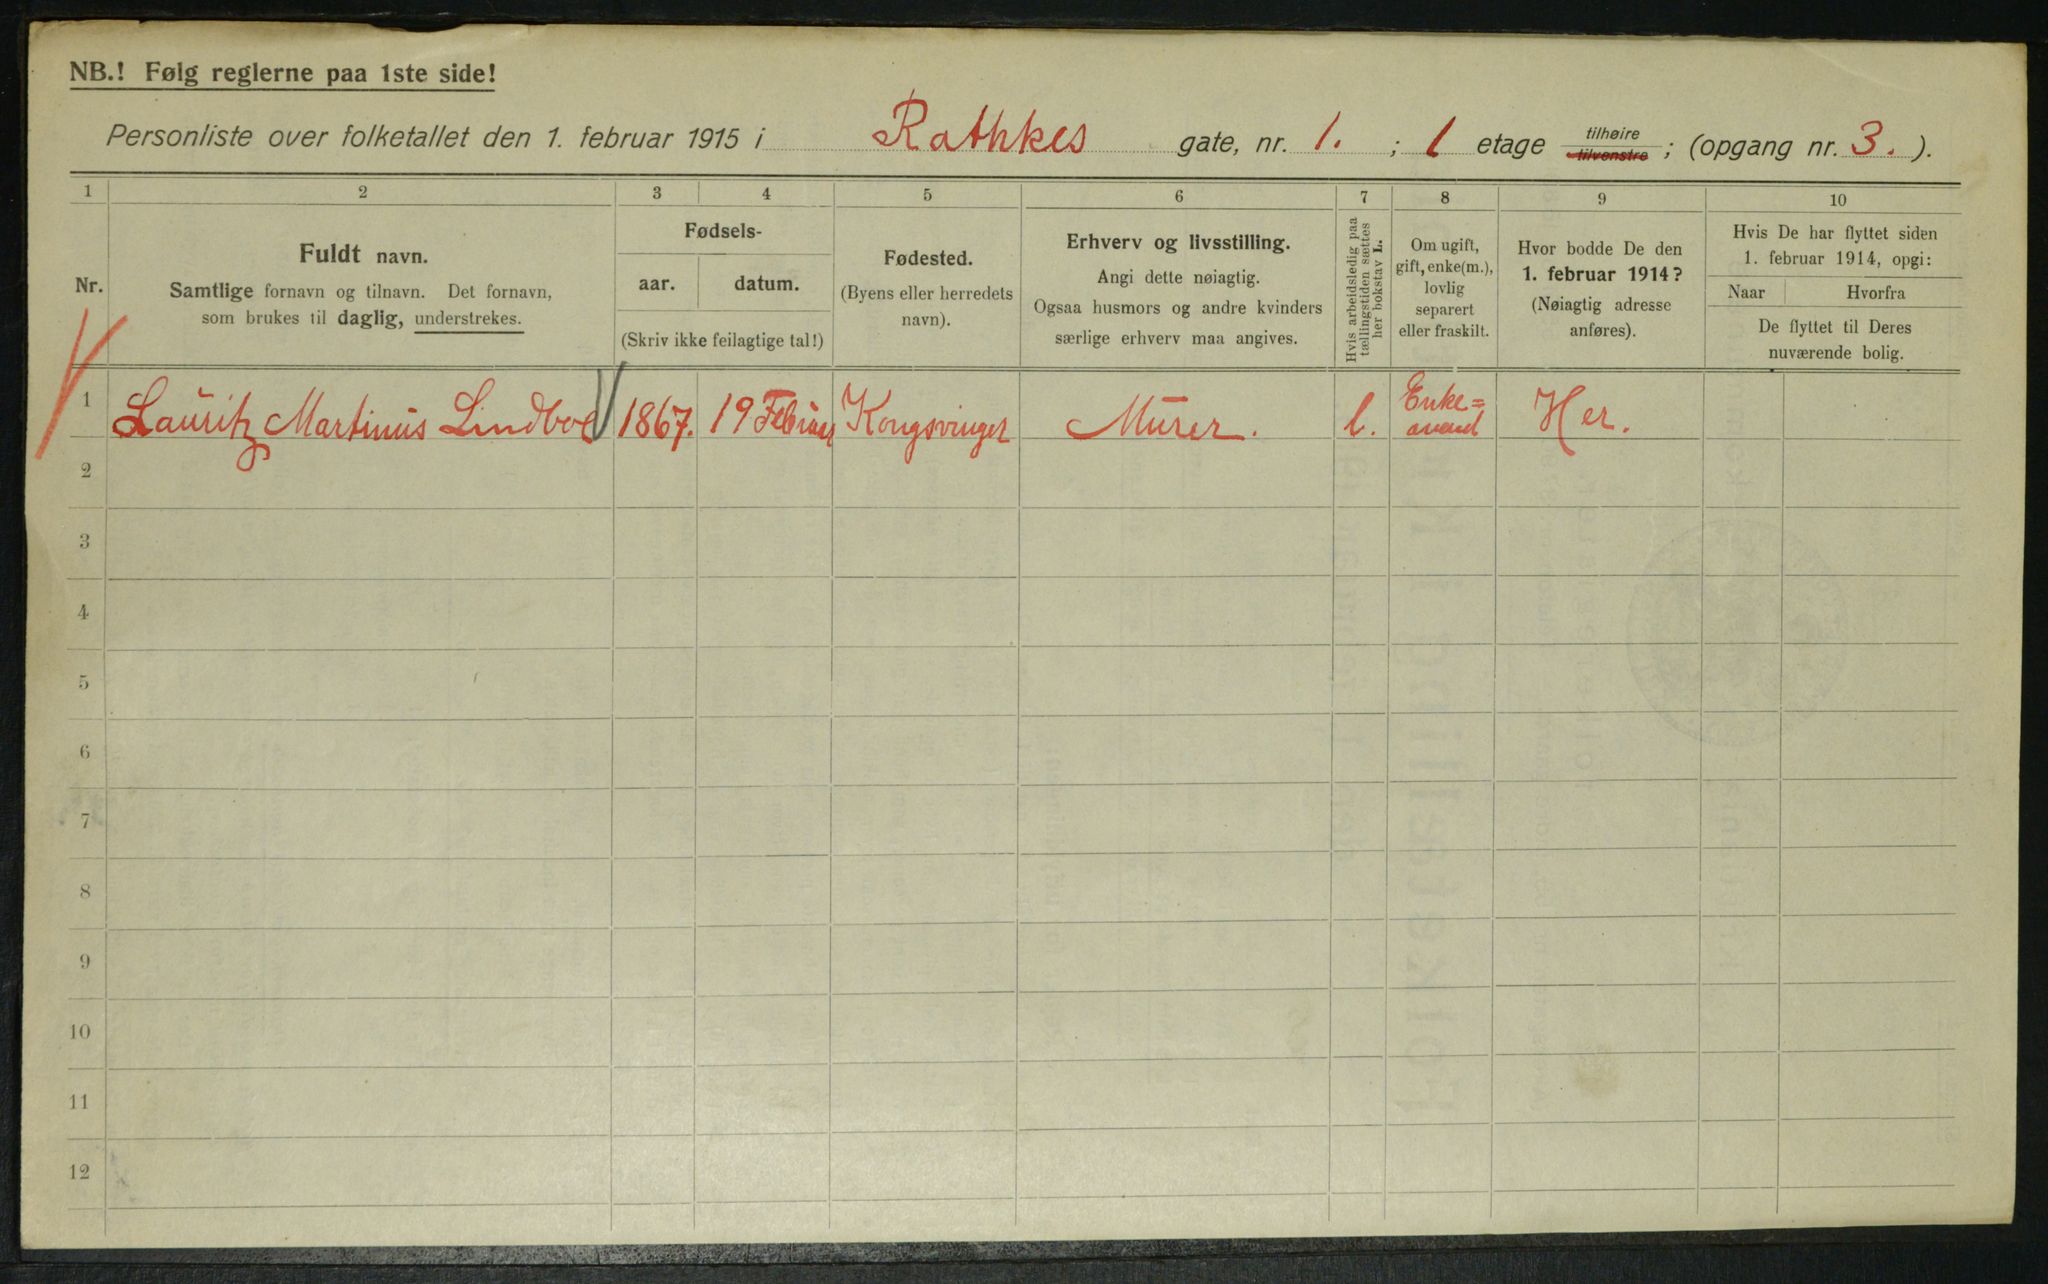 NB.! Følg reglerne paa 1ste side!
Personliste over folketallet den 1. februar 1915 i Rathkes gate, nr. 1. ; 1 etage tilhøire tilvenstre ; (opgang nr. 3. ).
1 2 3 4 5 6 7 8 9 10
Nr.
Fuldt navn.
Samtlige fornavn og tilnavn. Det fornavn,
som brukes til daglig, understrekes.
Fødsels-
aar. datum.
(Skriv ikke feilagtige tal!)
Fødested.
(Byens eller herredets
navn).
Erhverv og livsstilling.
Angi dette nøiagtig.
Ogsaa husmors og andre kvinders
særlige erhverv maa angives.
Hvis arbeidsledig paa
tællingstiden sættes
her bokstav L.
Om ugift,
gift, enke(m.),
lovlig
separert
eller fraskilt.
Hvor bodde De den
1. februar 1914?
(Nøiagtig adresse
anføres).
Hvis De har flyttet siden
1. februar 1914, opgi:
Naar Hvorfra
De flyttet til Deres
nuværende bolig.
1 Lauritz Martinus Lindboe 1867. 19 Februar Kongsvinger Murer. l. Enke=
mand Her.
2
3
4
5
6
7
8
9
10
11
12